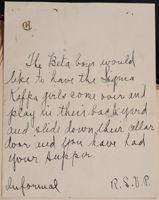 The Beta boys would
like to have the Sigma
Kappa girls come over and
play in their backyard
and slide down their cellar
door and you have had
your supper.
Informal R.S.V.P.